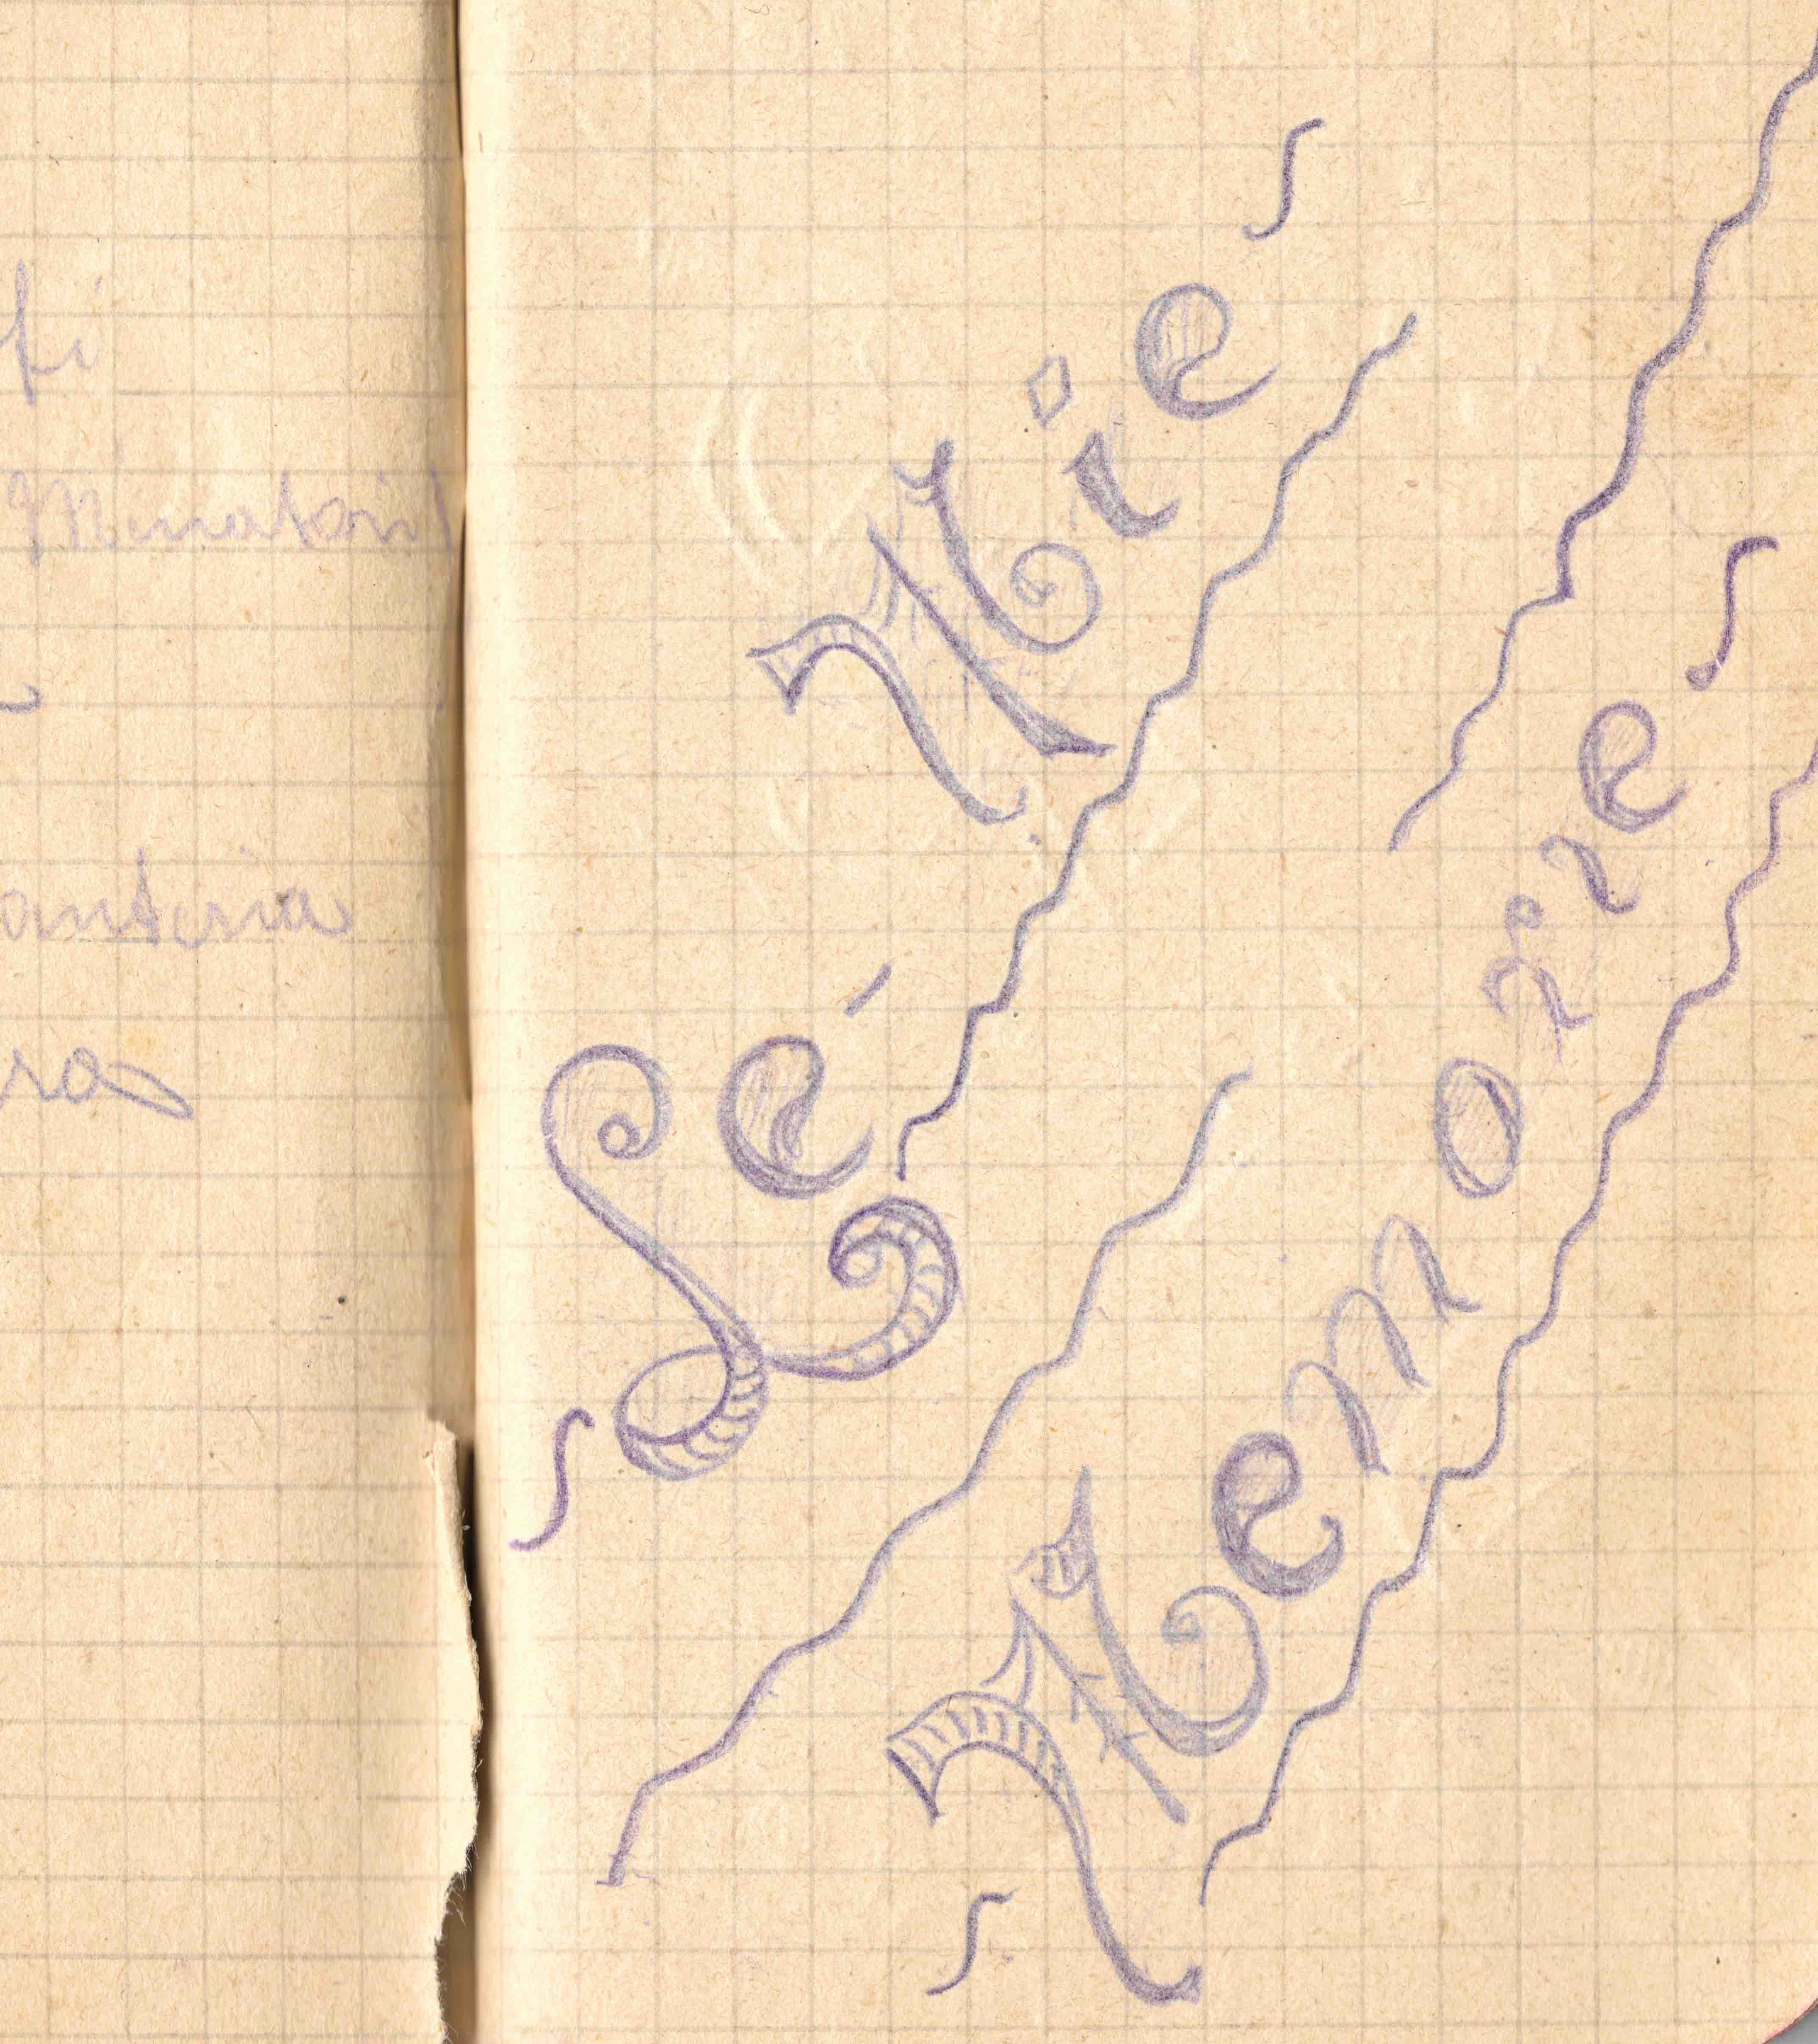 fi
Minatori
anteria
ra
Le' Mie
Memorie